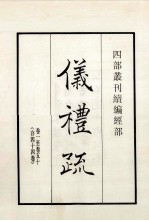 四部叢刊續編經部
儀禮疏